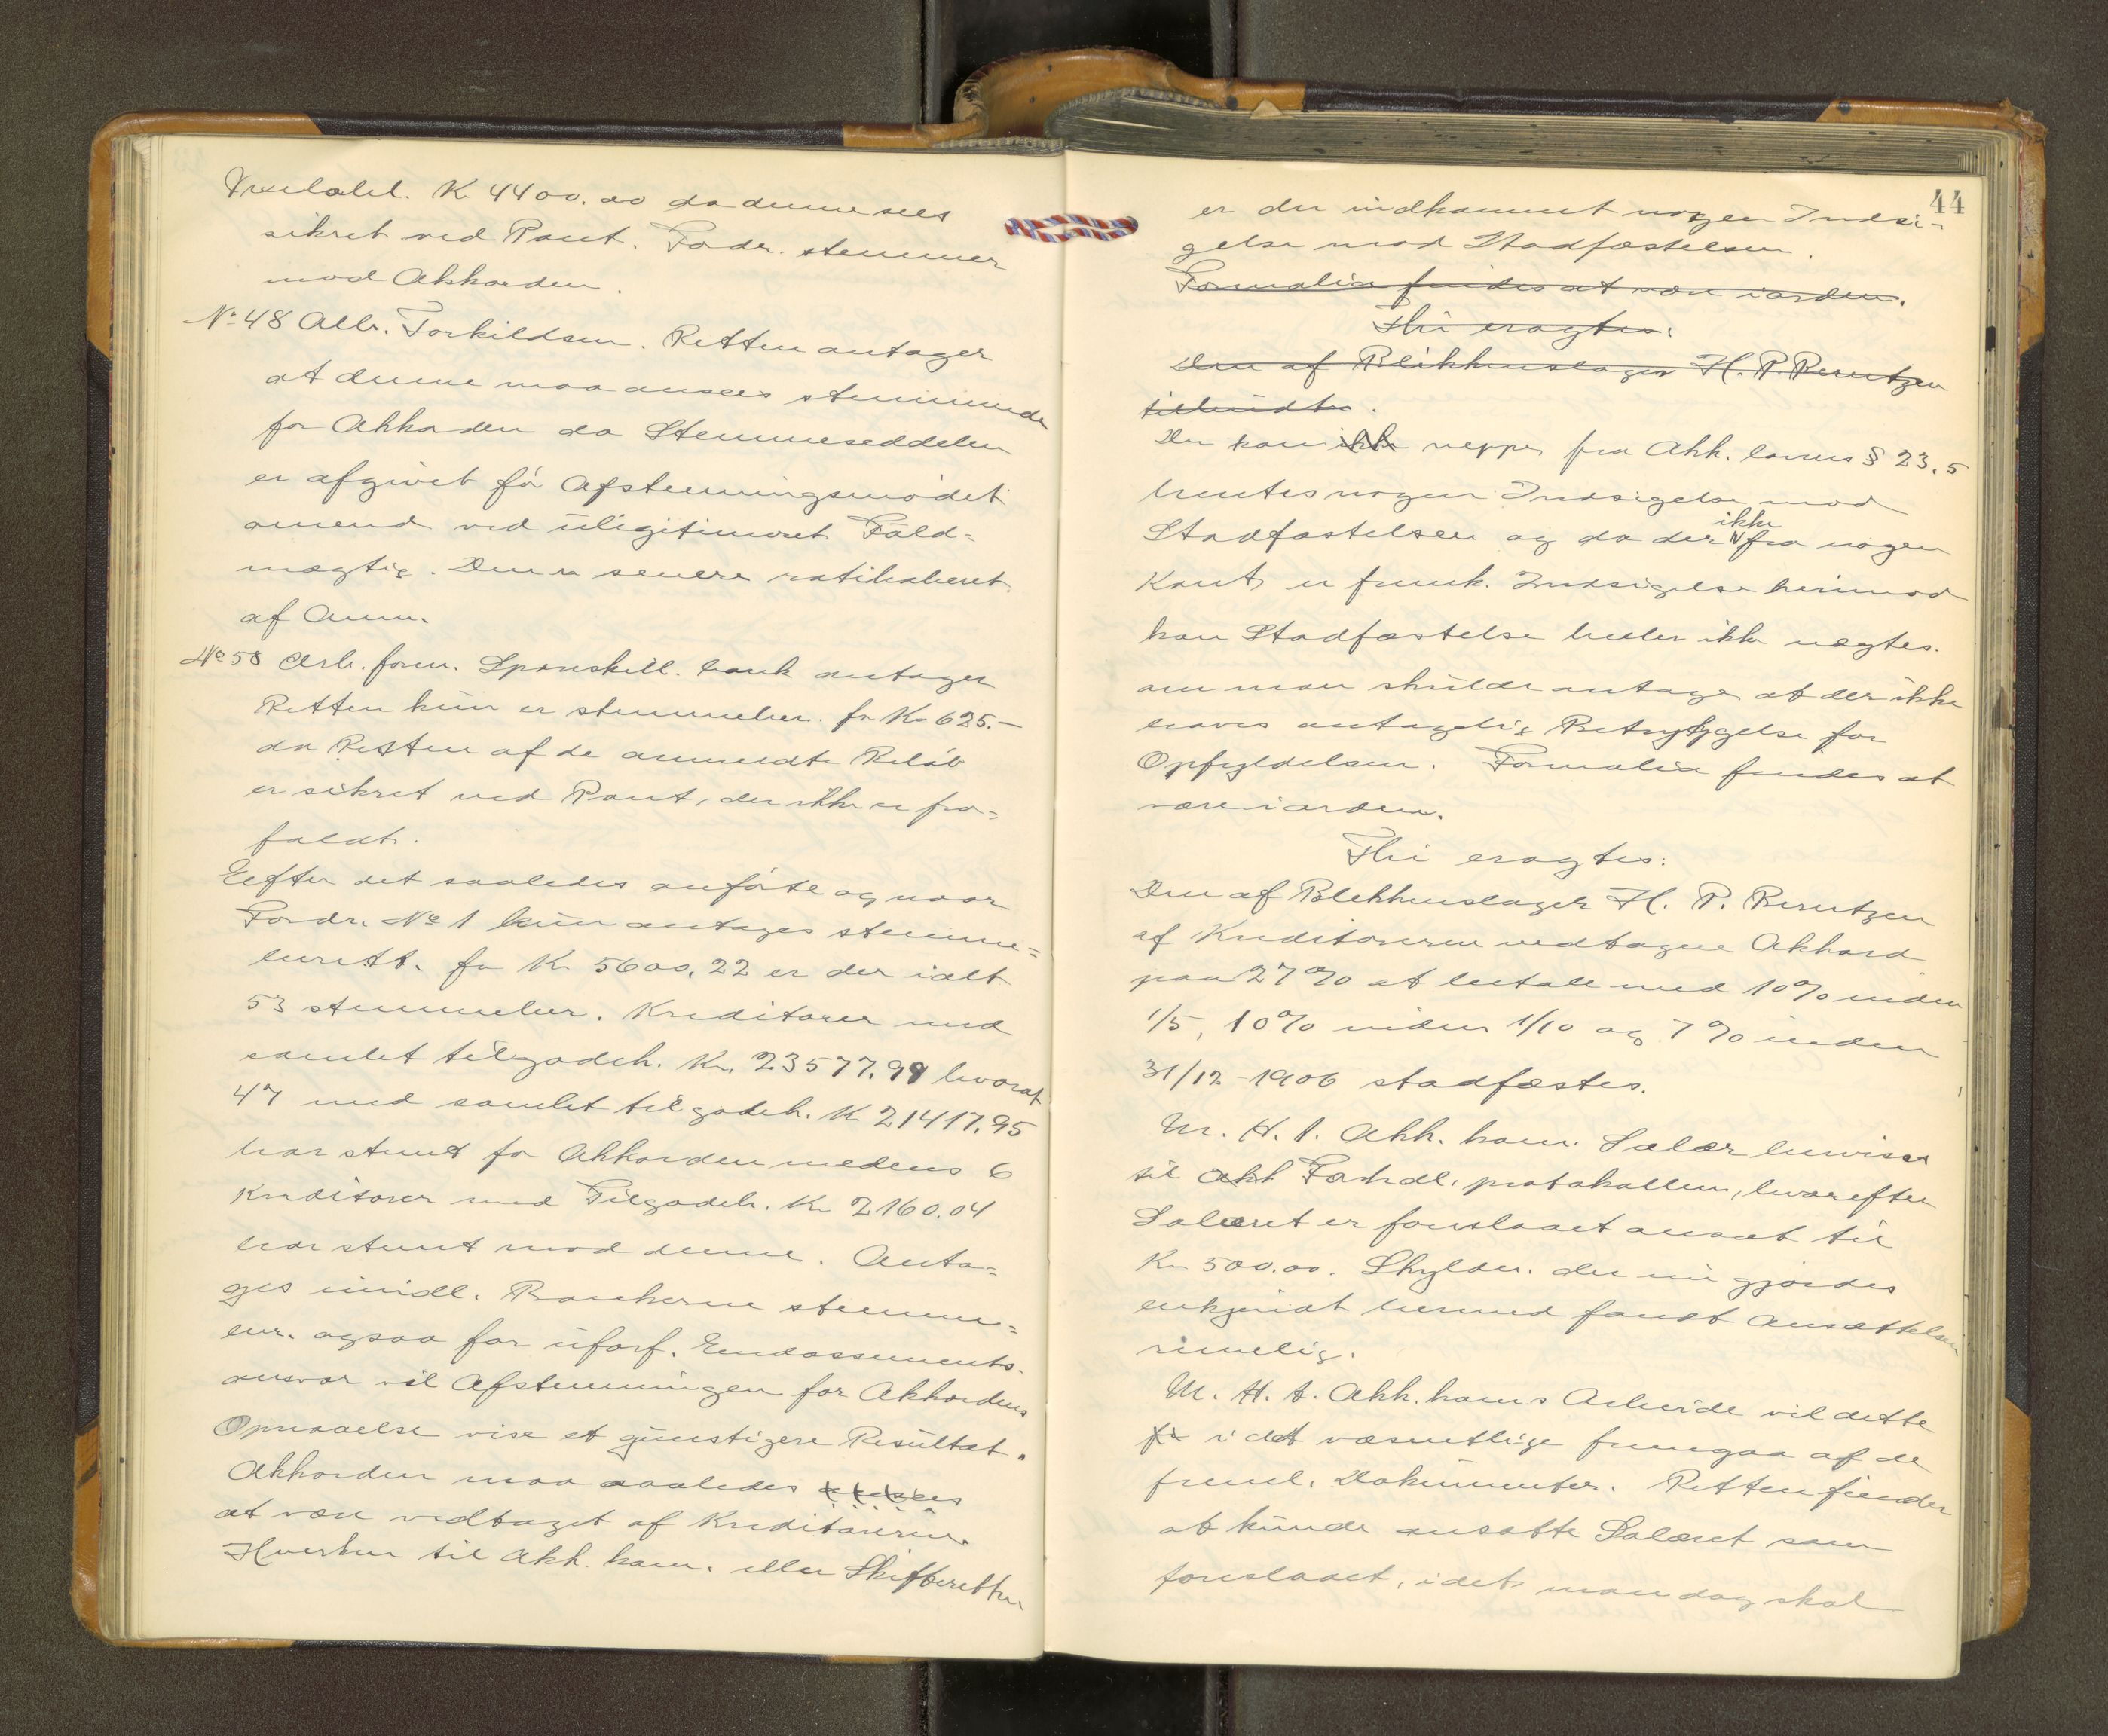 Vexelobl. Kr 4400.00 da denne sees
sikret ved Pant. Fordr. stemmer
mod Akkorden.
No 48 Alb. Torkildsen. Retten antager
at denne maa ansees stemmende
for Akkorden da Stemmeseddelen
er afgivet før Afstemningsmødet
omend ved ulegitimeret Fuld=
mægtig. Den er senere ratihaberet
af Anm.
No 58 Arb. foren. Spareskill. bank antager
Retten kun er stemmeber. for Kr 625.-
da Resten af de anmeldte Beløb
er sikret ved Pant, der ikke er fra=
faldt.
Eefter det saaledes anførte og naar
Fordr. No 1 kun antages stemme=
berett. for Kr 5600,22 er der ialt
53 stemmeber. Kreditorer med
samlet tilgodeh. Kr. 23577.99 hvoraf
47 med samlet tilgodeh. Kr 21417.95
har stemt for Akkorden medens 6
Kreditorer med Tilgodeh. Kr 2160.04
har stemt mod denne. Anta=
ges imidl. Bankerne stemme=
ber. ogsaa for uforf. Endossements-
ansvar vil Afstemningen for Akkordens
Opnaaelse vise et gunstigere Resultat.
Akkorden maa saaledes ansees
at være vedtaget af Kreditorerne.
Hverken til Akk. kom. eller Skifteretten
44
er der indkommet nogen Indsi-
gelse mod Stadfæstelsen.
Formalia findes at være iorden.
Thi eragtes:
Den af Blikkenslager H. P. Berntzen
tilbudte.
Der kan ikke neppe fra Akk. lovens § 23,5
hentes nogen Indsigelse mod
Stadfæstelsen og da der ikke fra nogen
Kant er fremk. Indsigelse herimod
kan Stadfæstelse heller ikke nægtes.
om man skulde antage at der ikke
haves antagelig Betryggelse for
Opfyldelsen. Formalia findes at
være iorden.
Thi eragtes:
Den af Blekkenslager H. P. Berntzen
af Kreditorerne vedtagne Akkord
paa 27% at betale med 10% inden
1/5, 10% inden 1/10 og 7% inden
31/12 - 1906 stadfæstes.
M. H. t. Akk. kom. Salær henvises
til akk Forhdl. protokollen, hvorefter
Salæret er foreslaaet ansat til
Kr 500.00. Skylder. der nu gjordes
bekjendt hermed fandt Ansættelsen
rimelig.
M. H. t. Akk. kom.s Arbeide vil dette
fr i det væsentlige fremgaa af de
freml. Dokumenter. Retten finder
at kunde ansætte Salæret som
foreslaaet, idet man dog skal